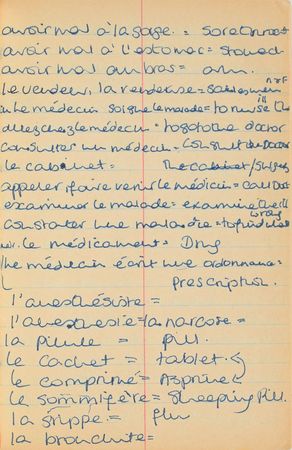 avoir mal à la gorge. = sore throat
avoir mal à l'estomac = stomach
avoir mal au bras = arm.
le vendeur, la vendeuse = salesman
le médecin soigne le malade = to nurse the ill
allez chez le médecin = to go to the doctor
consulter un médecin = consult the doctor
le cabinet = The cabinet / Surgery
appeler, faire venir le médecin = call Doct
examiner le malade = examine the ill
constater une maladie = to find
le médicament = Drug
le médecin écrit une ordonnance =
Prescription.
l'anesthésiste =
l'anesthesie = la narcose =
la pilule = pill.
le cachet = tablet.
le comprimé = Asprine
le somnifère = Sleeping Pill.
la grippe = flu
la bronchite =